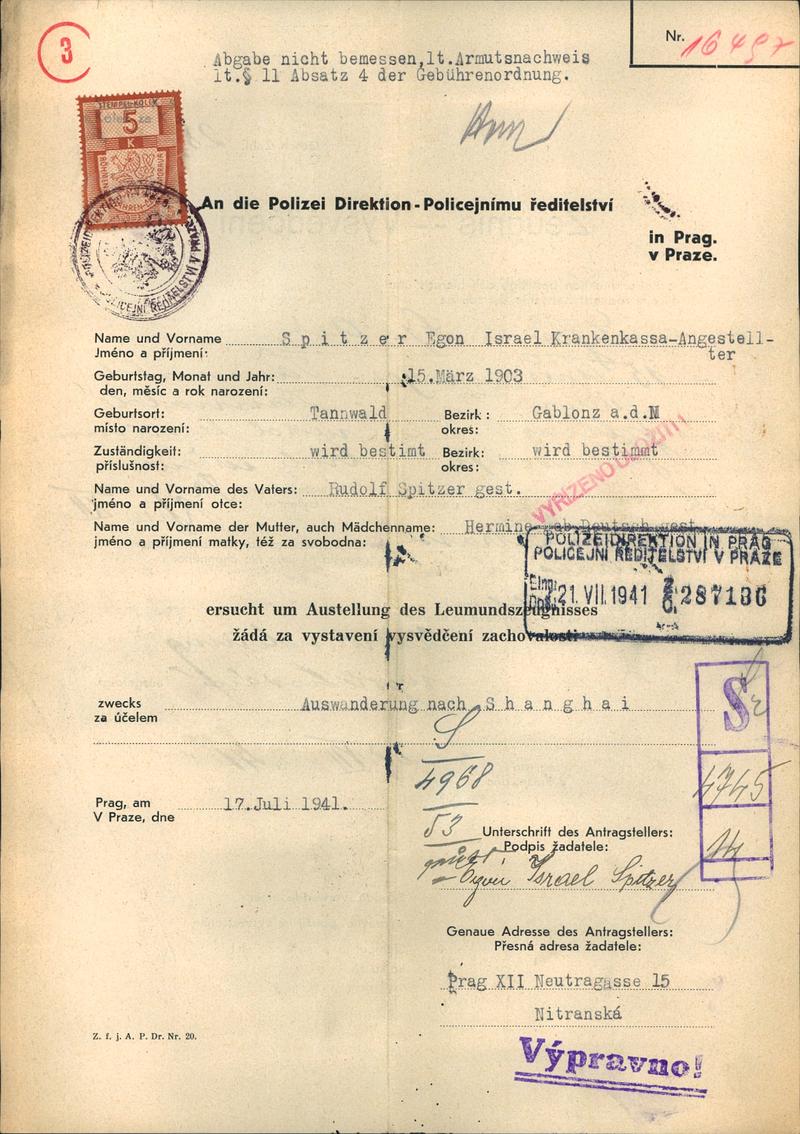 3
Nr. 16497
Abgabe nicht bemessen,lt.Armutsnachweis
lt.§ 11 Absatz 4 der Gebührenordnung.
STEMPEL-KOLEK
5
K
An die Polizei Direktion-Policejnímu ředitelství
in Prag.
v Praze.
Name und Vorname S p i t z e r Egon Israel Krankenkassa-Angestell-
Jméno a příjmení: ter
Geburtstag, Monat und Jahr: 15.März 1903
den, měsíc a rok narození:
Geburtsort: Tannwald Bezirk: Gablonz a.d.N
místo narození: okres:
Zuständigkeit: wird bestimt Bezirk: wird bestimmt
příslušnost: okres:
VYŘÍZENO ULOŽITI!
Name und Vorname des Vaters: Rudolf Spitzer gest.
jméno a příjmení otce:
Name und Vorname der Mutter, auch Mädchenname: Hermine geb Deutsch gest
jméno a příjmení matky, též za svobodna:
POLIZEIDIREKTION IN PRAG
POLICEJNÍ ŘEDITELSTVÍ V PRAZE
21.VII.1941 287136
ersucht um Austellung des Leumundszeugnisses
žádá za vystavení vysvědčení zachovalosti
zwecks Auswanderung nach S h a n g h a i
za účelem
S
S
4968
4745
53
14
Prag, am 17.Juli 1941.
V Praze, dne
Unterschrift des Antragstellers:
Podpis žadatele:
Egon Israel Spitzer
Genaue Adresse des Antragstellers:
Přesná adresa žadatele:
Prag XII Neutragasse 15
Nitranská
Z. f. j. A. P. Dr. Nr. 20.
Výpravno!